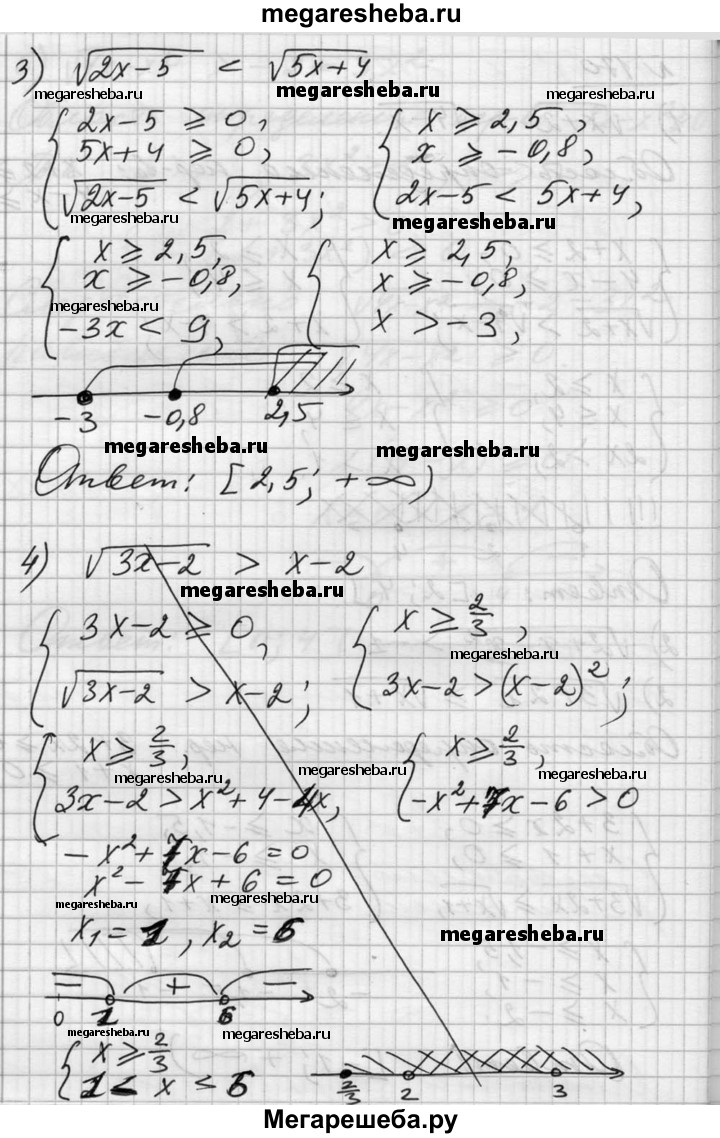 megaresheba.ru
3) √2x-5 < √5x+4
megaresheba.ru megaresheba.ru
{ 2x-5 ≥ 0, { x ≥ 2,5,
5x+4 ≥ 0, x ≥ -0,8,
√2x-5 < √5x+4; 2x-5 < 5x+4,
megaresheba.ru megaresheba.ru
{ x ≥ 2,5, { x ≥ 2,5,
x ≥ -0,8, x ≥ -0,8,
megaresheba.ru
-3x < 9, x > -3,
-3 -0,8 2,5
megaresheba.ru megaresheba.ru
Ответ: [2,5; +∞)
4) √3x-2 > x-2
megaresheba.ru
{ 3x-2 ≥ 0, { x ≥ 2/3,
megaresheba.ru
√3x-2 > x-2; 3x-2 > (x-2)²;
{ x ≥ 2/3, { x ≥ 2/3,
megaresheba.ru megaresheba.ru
3x-2 > x²+4-4x, -x²+7x-6 > 0
-x²+7x-6 = 0
x²-7x+6 = 0
megaresheba.ru megaresheba.ru
x₁ = 1, x₂ = 6
megaresheba.ru
- + -
0 1 6
megaresheba.ru megaresheba.ru
{ x ≥ 2/3
1 < x < 6
2/3 2 3
Мегарешеба.ру